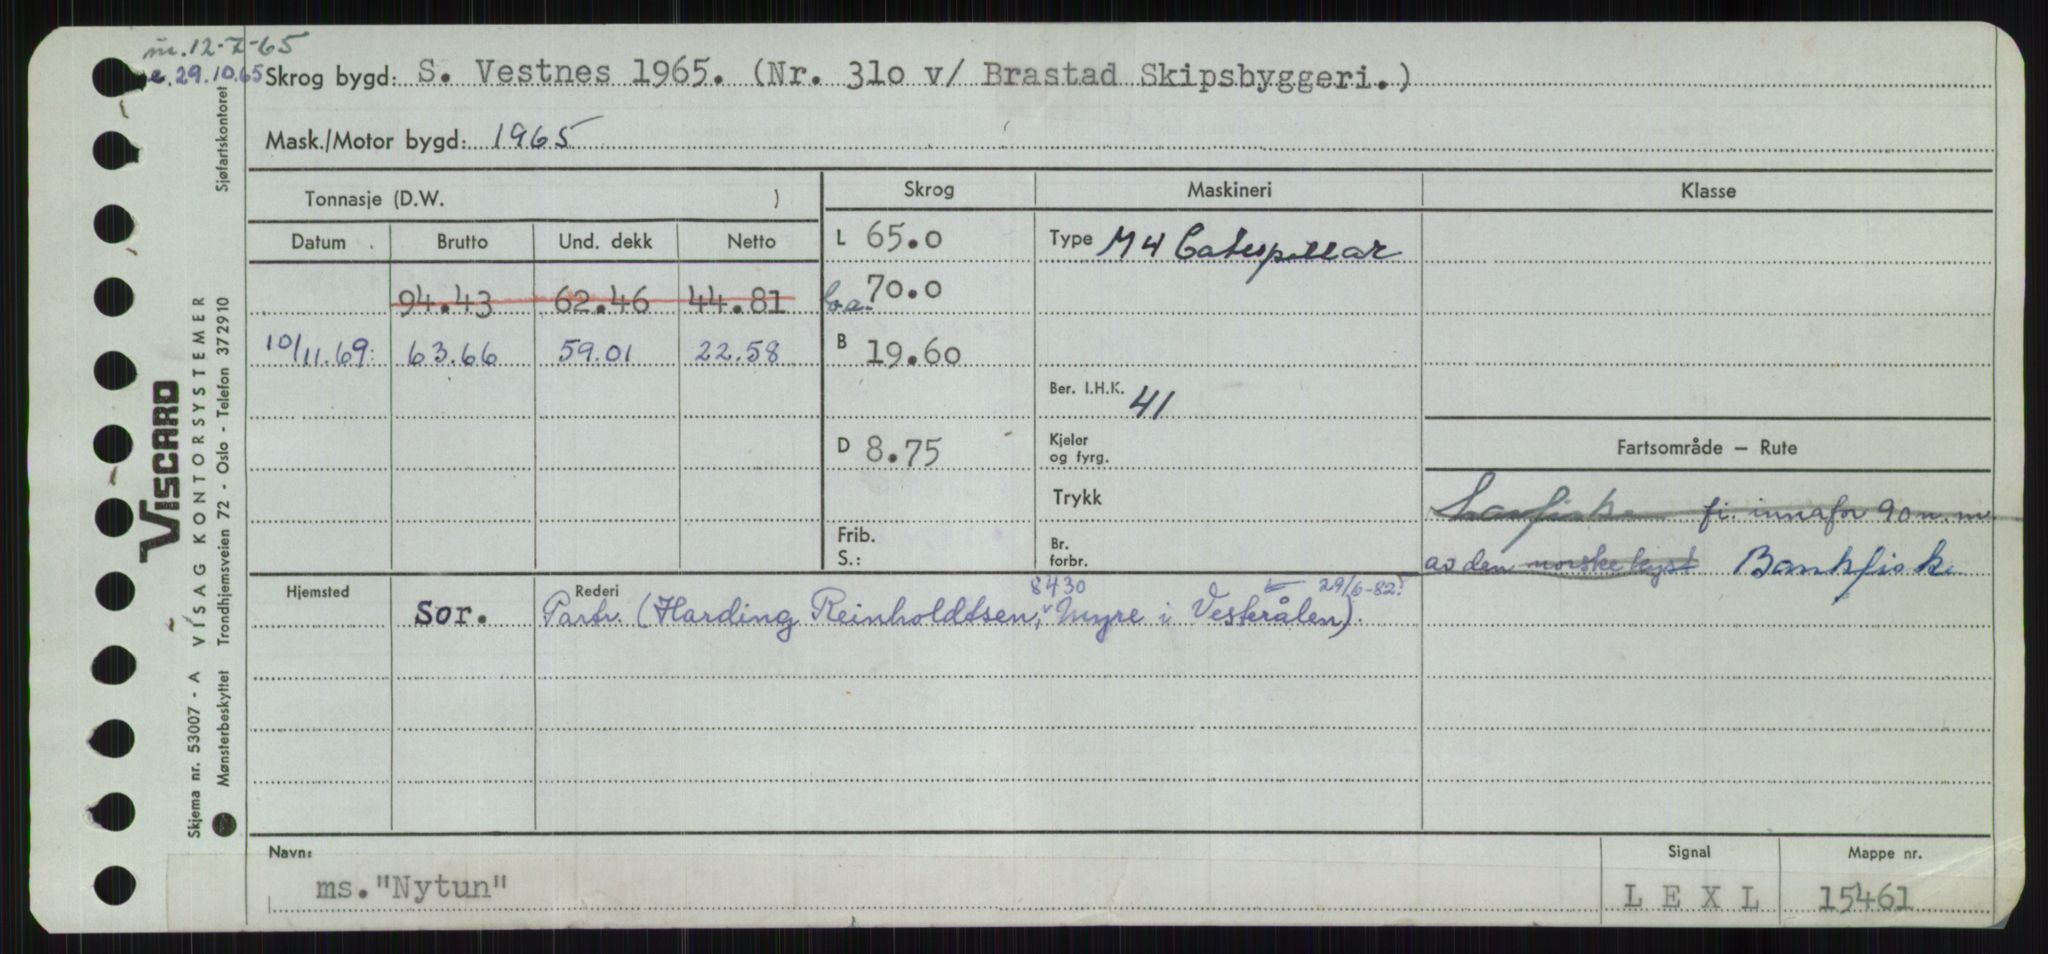 m. 12-7-65
e. 29.10.65 Skrog bygd: S. Vestnes 1965. (Nr. 31o v/ Brastad Skipsbyggeri.)
Mask./Motor bygd: 1965
Tonnasje (D.W. )
Skrog
Maskineri
Klasse
Datum Brutto Und. dekk Netto
94.43 62.46 44.81
10/11.69: 63.66 59.01 22.58
L 65.o
loa. 70.o
B 19.6o
D 8.75
Frib.
S.:
Type M 4 Caterpillar
Ber. I.H.K. 41
Kjeler
og fyrg.
Trykk
Br.
forbr.
Fartsområde – Rute
fi. innafor 90 n. m.
av den norske kyst Bankfiske
Hjemsted
Rederi
8430 29/6-82:
Sor. Partr. (Harding Reinholdtsen, Myre i Vesterålen).
Navn:
ms. "Nytun"
Signal
L E X L
Mappe nr.
15461
VISCARD
Skjema nr. 53007 - A VISAG KONTORSYSTEMER
Mønsterbeskyttet Trondhjemsveien 72 - Oslo - Telefon 372910
Sjøfartskontoret